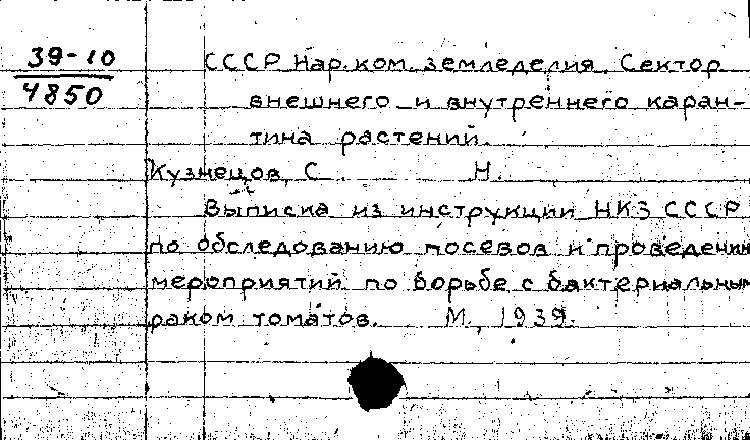 39-10
4850
СССР Нар. ком. земледелия. Сектор
внешнего и внутреннего каран-
тина растений.
Кузнецов, С. Н.
Выписка из инструкции НКЗ СССР
по обследованию посевов и проведению
мероприятий по борьбе с бактериальным
раком томатов. М., 1939.